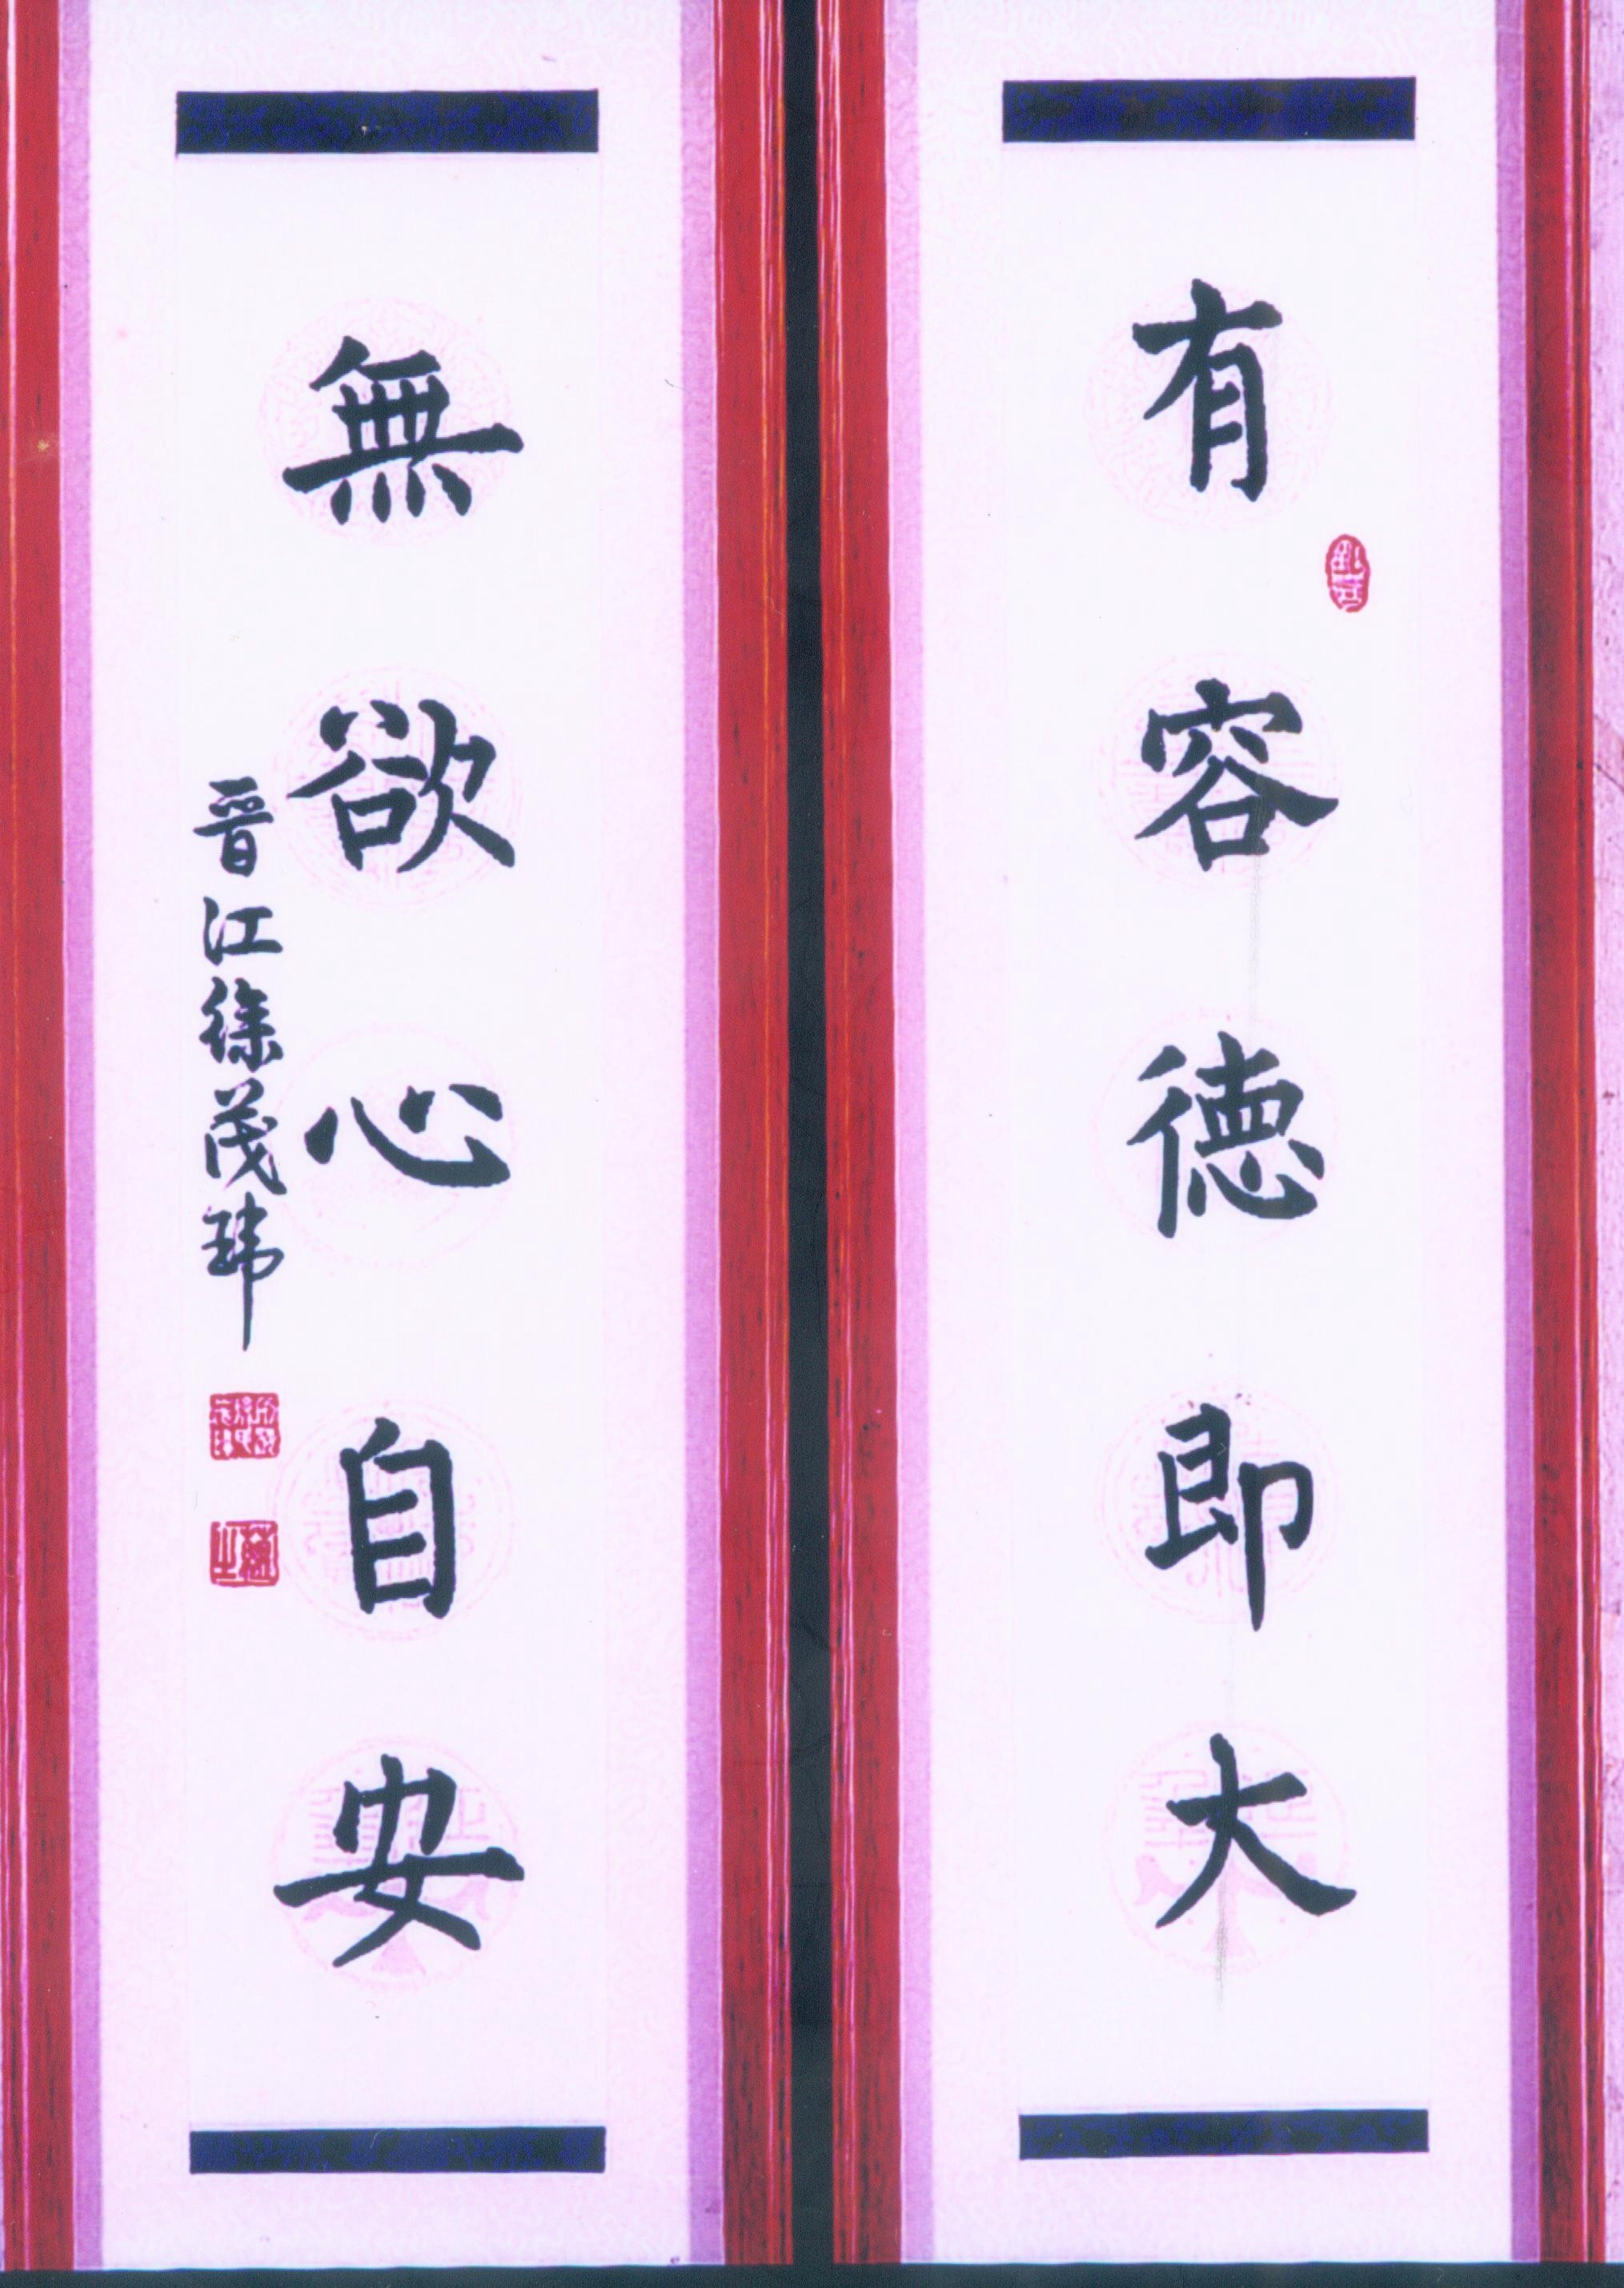 有容德即大
無欲心自安
晉江徐茂瑋